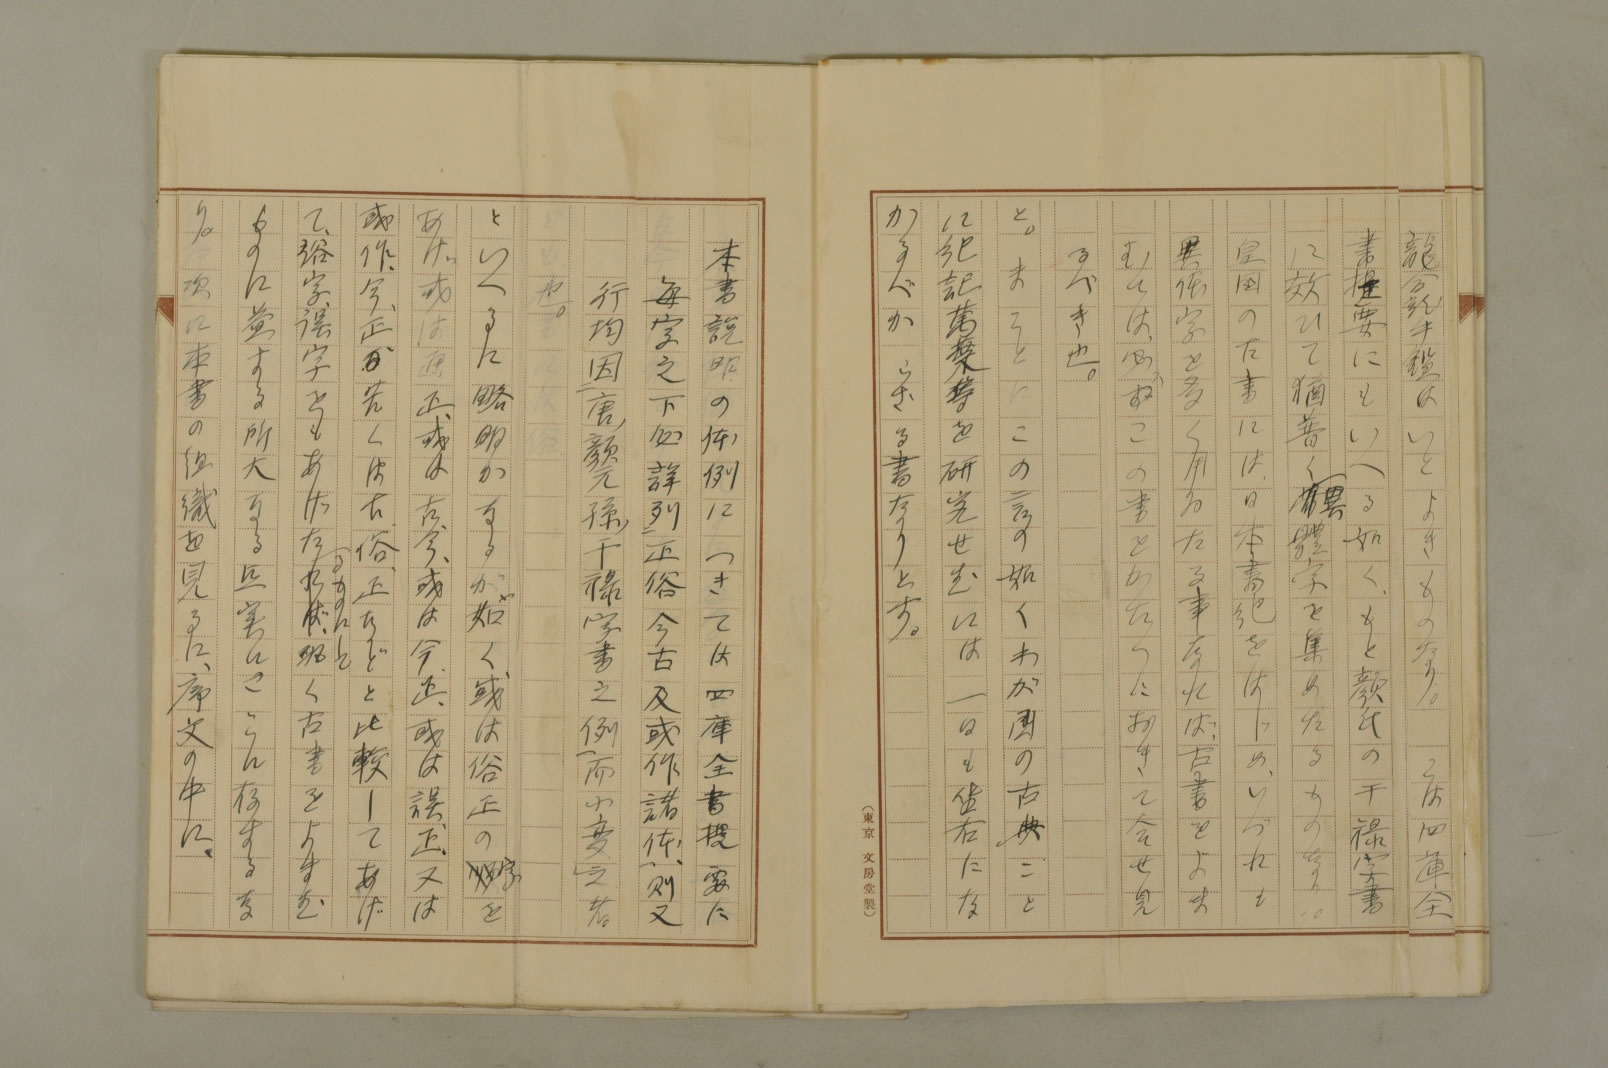 龍龕手鑑はいとよきものなり。こは四庫全
書提要にもいへる如く、もと顔氏の干禄字書
に效ひて猶普く異體字を集めたるものなり。
皇国の古書には、日本書紀をはじめ、いづれも
異体字を多く用ゐたる事なれば、古書をよま
むには、必ずこの書をかたへにおきて合せ見
るべき也。
と。まことにこの言の如くわが国の古典こと
に紀記萬葉等を研究せむには一日も座右にな
かるべからざる書なりとす。
(東京 文房堂製)
本書説明の体例につきては四庫全書提要に
毎字之下必詳列正俗今古及或作諸体、則又
行均因唐顔元孫干禄字書之例、而小変之者
也。
といへるに略明かなるが如く、或は俗正の字を
あげ、或は通正、或は古今、或は今正、或は誤正、又は
或作、今、正若くは古、俗、正などと比較してあげ
て、俗字、誤字をもあげたるものにして、古書をよまむ
ものに益する所大なる
次に本書の組織を見るに、序文の中に、